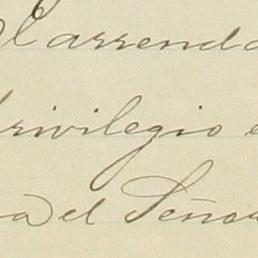 El arrenda
Privilegio e
a el Señor